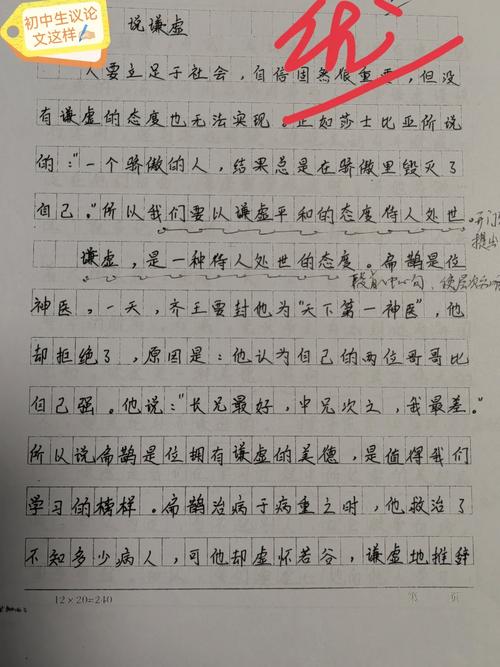 初中生议论
文这样✍🏻
说谦虚
优
人要立足于社会，自信固然很重要，但没
有谦虚的态度也无法实现。正如莎士比亚所说
的："一个骄傲的人，结果总是在骄傲里毁灭了
自己。"所以我们要以谦虚平和的态度待人处世
开门
提出
谦虚，是一种待人处世的态度。扁鹊是位
段首中心句，使层次
神医。一天，齐王要封他为"天下第一神医"，他
却拒绝了，原因是：他认为自己的两位哥哥比
自己强。他说："长兄最好，中兄次之，我最差。"
所以说扁鹊是位拥有谦虚的美德，是值得我们
学习的榜样。扁鹊治病于病重之时，他救治了
不知多少病人，可他却虚怀若谷，谦虚地推辞
12×20=240
第 页